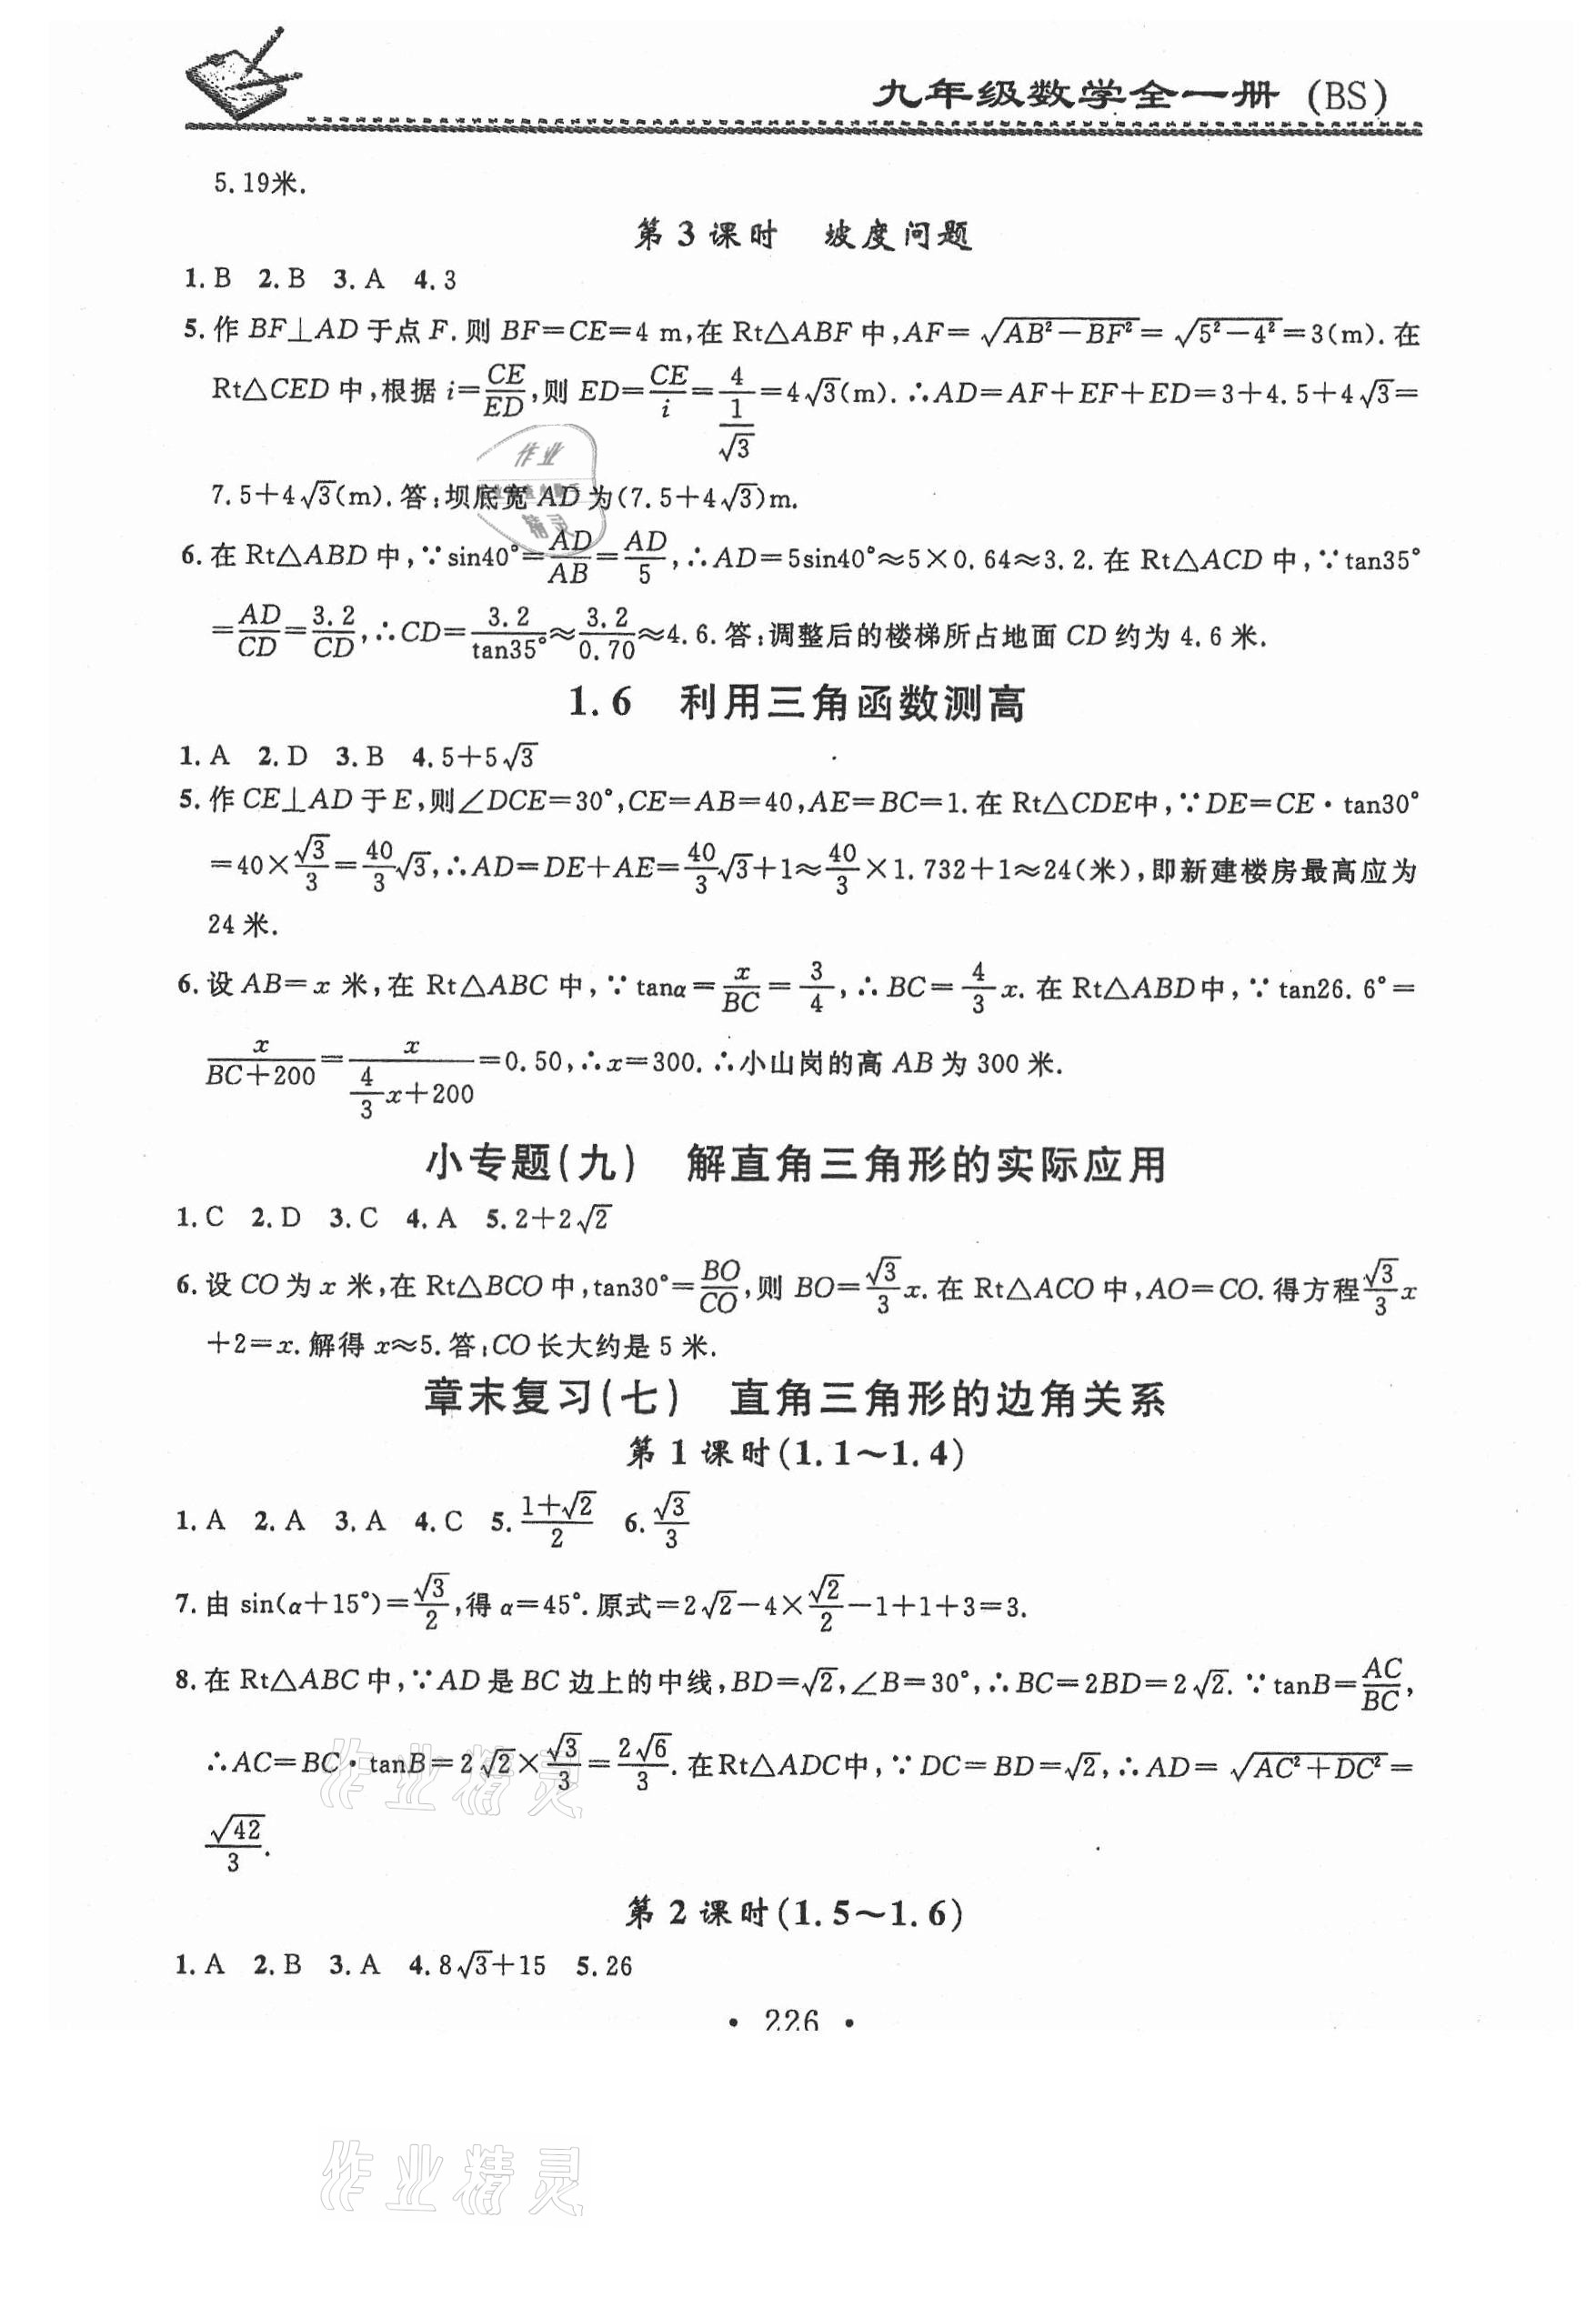 九年级数学全一册 (BS)
5.19米.
第3课时　坡度问题
1.B 2.B 3.A 4.3
5.作 BF⊥AD 于点 F.则 BF=CE=4 m,在 Rt△ABF 中,AF=√(AB²−BF²)=√(5²−4²)=3(m).在
Rt△CED 中,根据 i=CE/ED,则 ED=CE/i=4/(1/√3)=4√3(m).∴AD=AF+EF+ED=3+4.5+4√3=
7.5+4√3(m).答:坝底宽 AD 为(7.5+4√3)m.
6.在 Rt△ABD 中,∵sin40°=AD/AB=AD/5,∴AD=5sin40°≈5×0.64≈3.2.在 Rt△ACD 中,∵tan35°
=AD/CD=3.2/CD,∴CD=3.2/tan35°≈3.2/0.70≈4.6.答:调整后的楼梯所占地面 CD 约为 4.6 米.
1.6　利用三角函数测高
1.A 2.D 3.B 4.5+5√3
5.作 CE⊥AD 于 E,则∠DCE=30°,CE=AB=40,AE=BC=1.在 Rt△CDE中,∵DE=CE·tan30°
=40×√3/3=40/3√3,∴AD=DE+AE=40/3√3+1≈40/3×1.732+1≈24(米),即新建楼房最高应为
24 米.
6.设 AB=x 米,在 Rt△ABC 中,∵tanα=x/BC=3/4,∴BC=4/3x.在 Rt△ABD中,∵tan26.6°=
x/(BC+200)=x/(4/3x+200)=0.50,∴x=300.∴小山岗的高 AB 为 300 米.
小专题(九)　解直角三角形的实际应用
1.C 2.D 3.C 4.A 5.2+2√2
6.设 CO 为 x 米,在 Rt△BCO 中,tan30°=BO/CO,则 BO=√3/3x.在 Rt△ACO 中,AO=CO.得方程√3/3x
+2=x.解得 x≈5.答:CO 长大约是 5 米.
章末复习(七)　直角三角形的边角关系
第1课时(1.1～1.4)
1.A 2.A 3.A 4.C 5.(1+√2)/2 6.√3/3
7.由 sin(α+15°)=√3/2,得 α=45°.原式=2√2−4×√2/2−1+1+3=3.
8.在 Rt△ABC 中,∵AD 是 BC 边上的中线,BD=√2,∠B=30°,∴BC=2BD=2√2.∵tanB=AC/BC,
∴AC=BC·tanB=2√2×√3/3=2√6/3.在Rt△ADC中,∵DC=BD=√2,∴AD=√(AC²+DC²)=
√42/3.
第2课时(1.5～1.6)
1.A 2.B 3.A 4.8√3+15 5.26
• 226 •
作业精灵